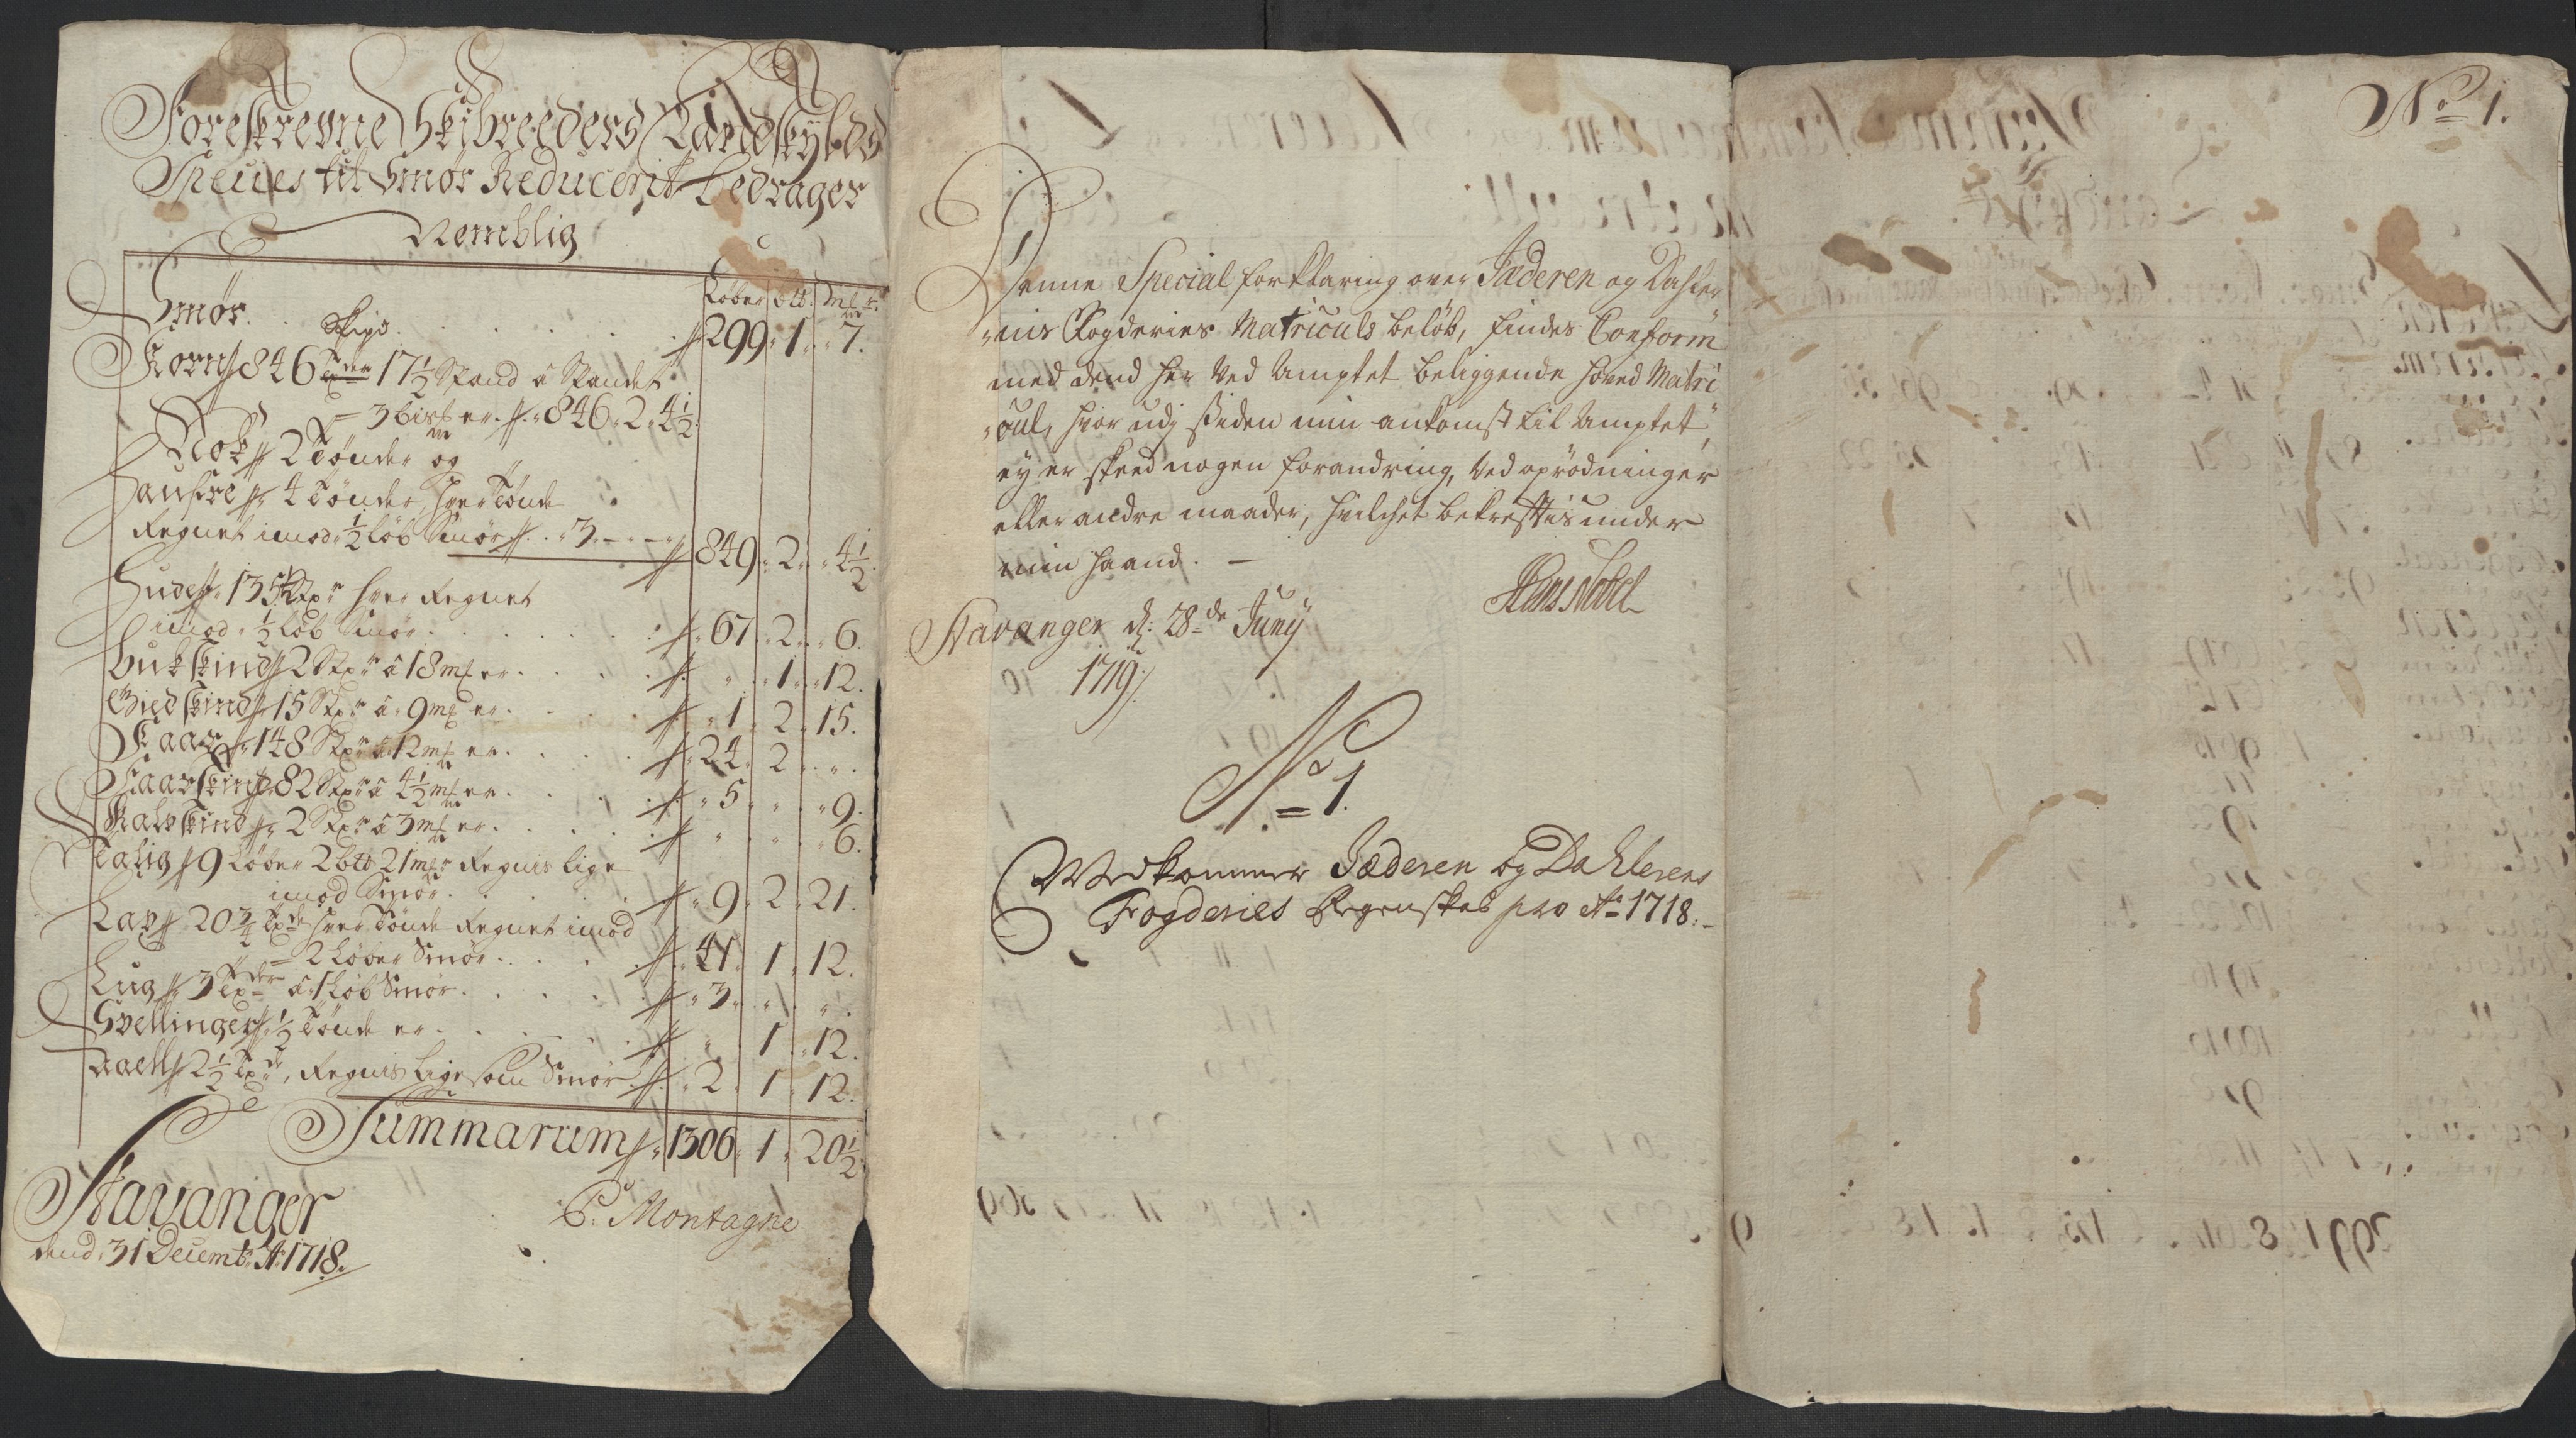 Foreskrevne Skibreeders Landskylds
Species til Smør Reducerit bedrager
Nemblig
Løber btt: mkr
Smør . . . . . 299 . 1 . 7.
Korn 846 Tønder 17½ Spand â Spandet
3 bismer . 846 . 2 . 4½
2 Tønder og
4 Tønder, hver Tønde
Regnet imod ½ Løb Smør . 3 . - . - 849 . 2 . 4½
Huder 135½ Stkr hver Regnet
imod ½ Løb Smør . . . 67 . 2 . 6.
Bukskind 2 Stkr â 18 mk er . . . 1 . 12.
Giedskind 15 Stkr â 9 mk er . . 1 . 2 . 15.
Faar 148 Stkr â 12 mk er . . . 24 . 2 . .
Faarskind 82 Stkr â 4½ mk er . . 5 . . 9.
Kalvskind 2 Stkr â 3 mk er . . . . . 6.
Talig 9 Løber 2 btt 21 mkr Regnis lige
imod Smør . . . 9 . 2 . 21.
Lax 20¾ Tønde hver Tønde Regnet imod
2 Løber Smør . . . 41 . 1 . 12.
3 Tønder â 1 Løb Smør . . . 3 . . .
½ Tønde er . . . 1 . 12.
Aaell 2½ Tønde, Regnis lige som Smør 2 . 1 . 12.
Summarum 1306 . 1 . 20½
Stavanger
dend 31 Decembr Ao 1718.
C: Montagne
Denne Special forklaring over Jæderen og Dahler
nis Fogderies Matriculs beløb, findes Conform
med dend her ved Amptet beliggende hoved Matri
cul, hvor udj siden min ankomst til Amptet
ey er skeed nogen forandring, ved oprødninger
eller andre maader, hvilchet bekreftis under
min haand. —
Hans Nobel
Stavanger d: 28de Junij
1719.
No 1.
Vedkommer Jæderen og Dahlerens
Fogderies Regenskab pro Ao 1718.
No 1.